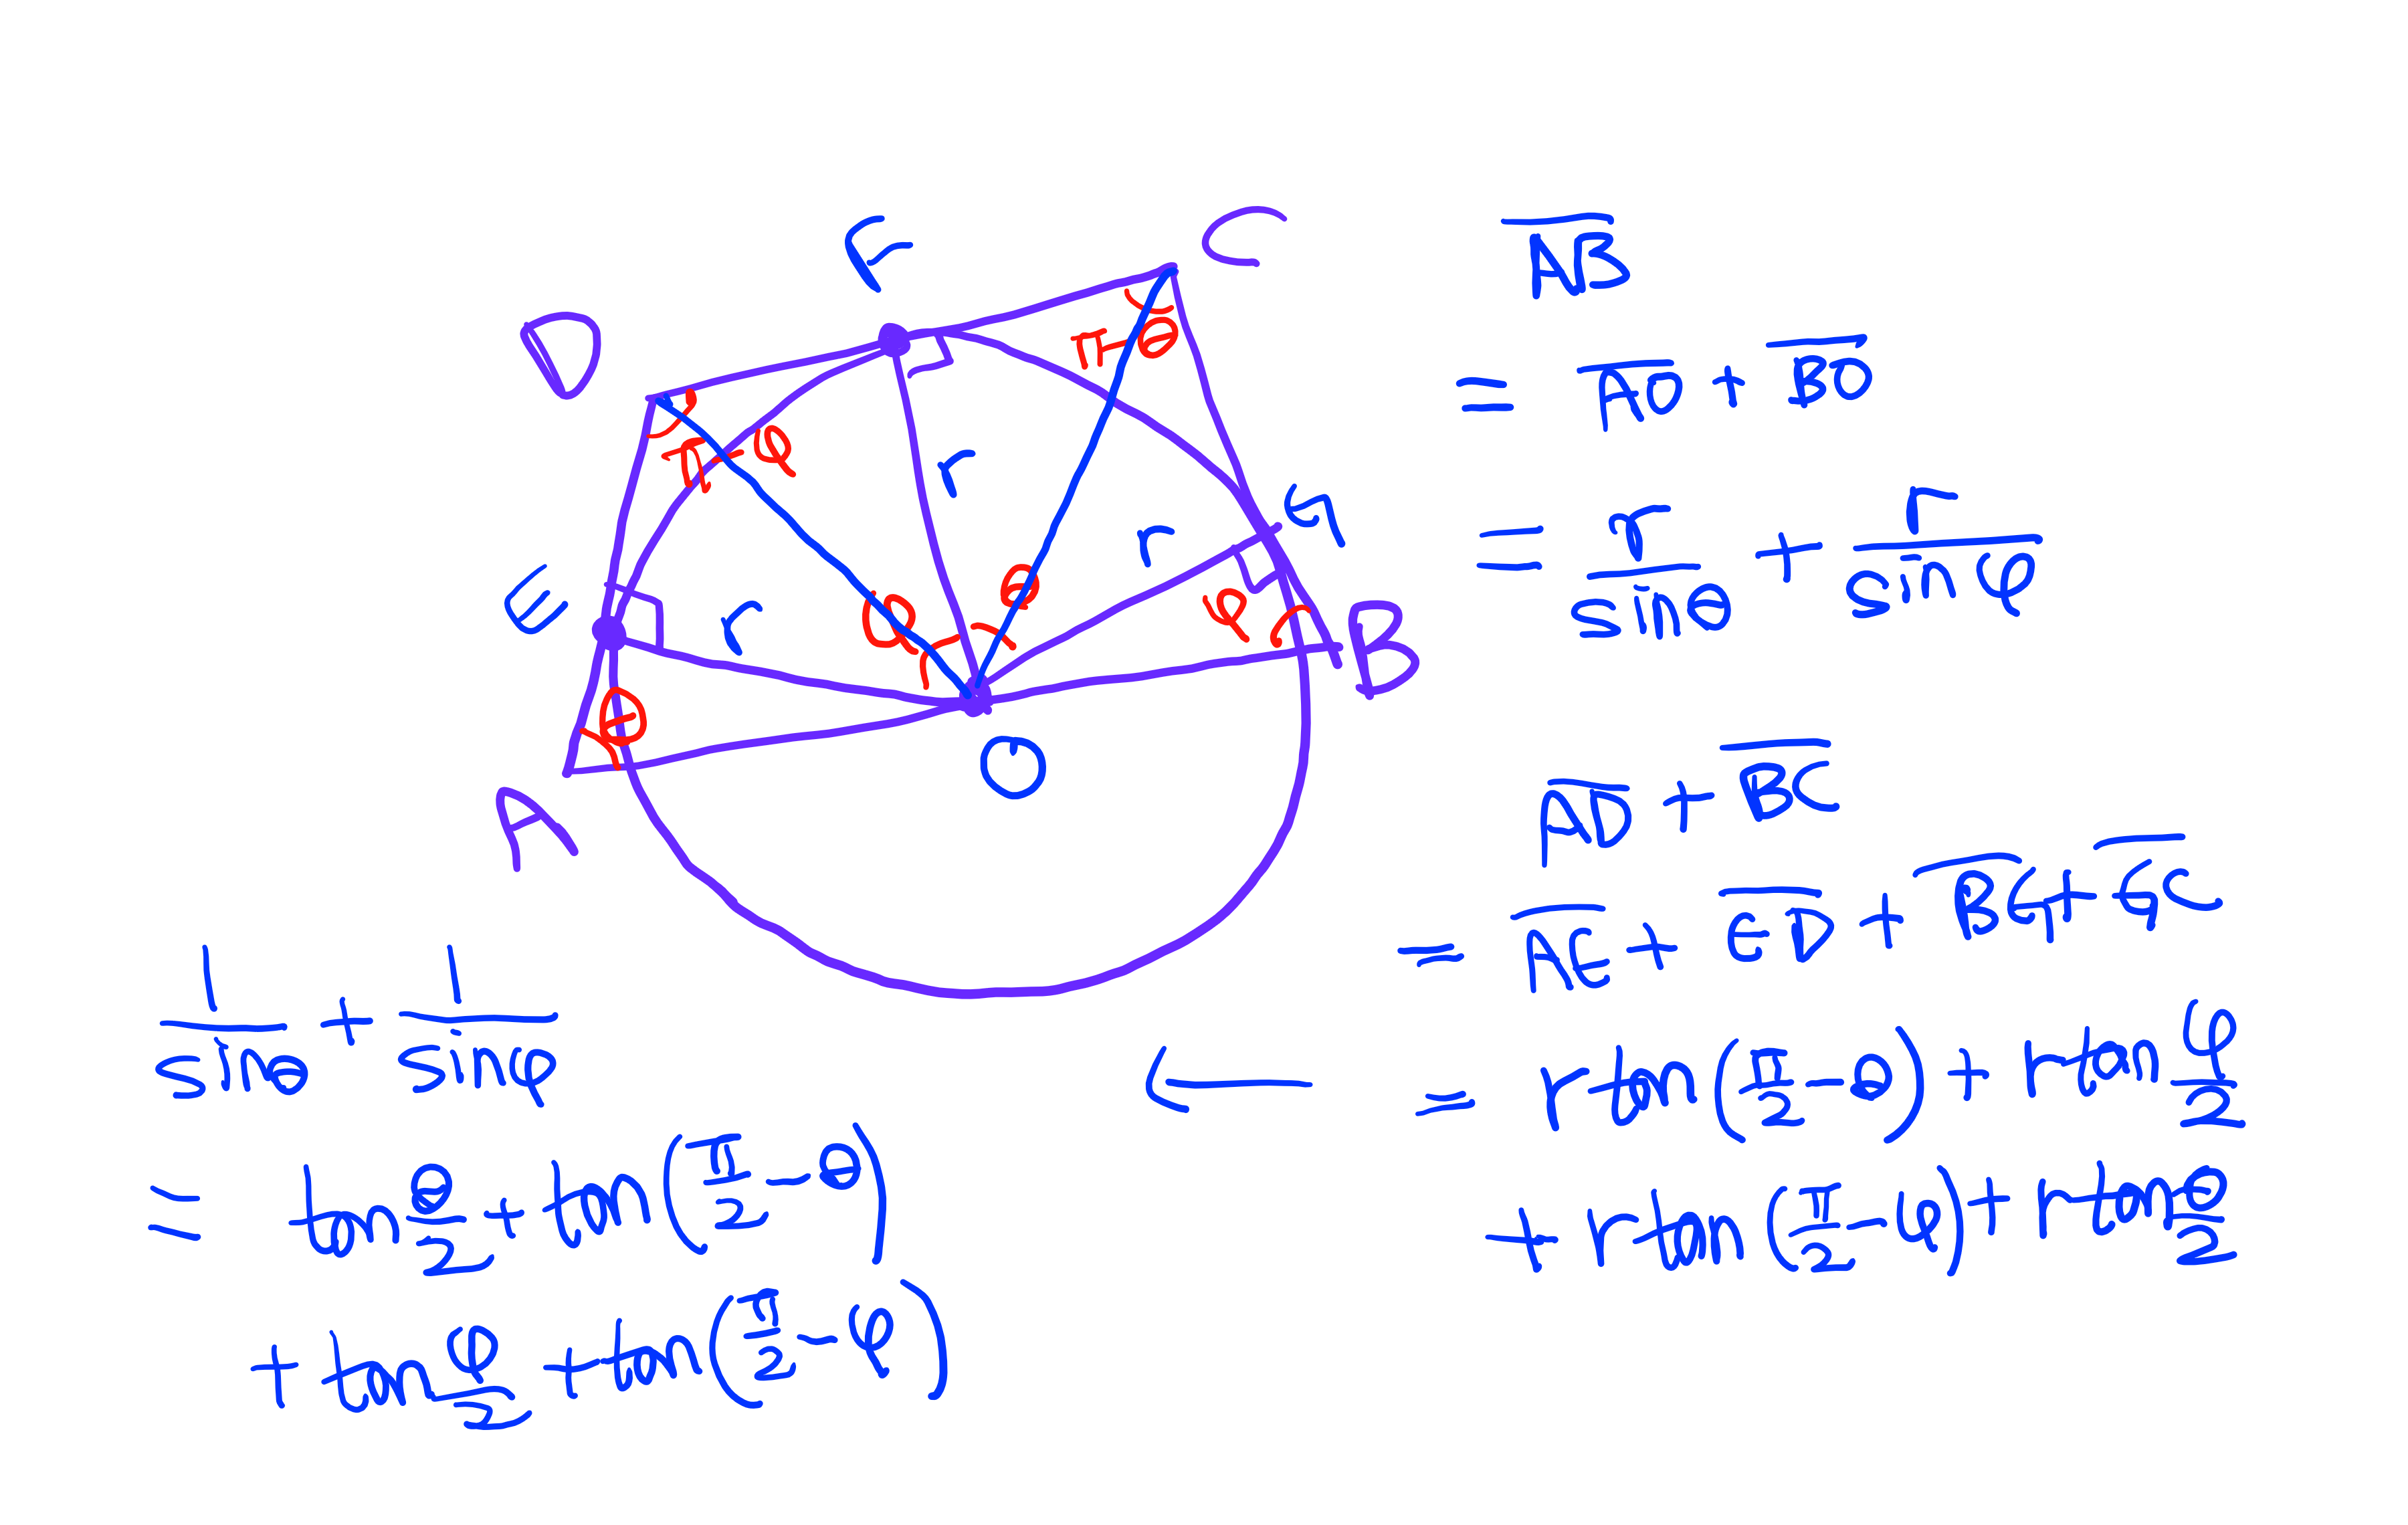 F
C
D
π-θ
π-φ
r
G
r
E
r
φ
θ
φ
B
θ
O
A
AB
= AO + BO
= r/sinθ + r/sinφ
AD + BC
= AE + ED + BG + GC
= rtan(π/2-θ) + rtan φ/2
+ rtan(π/2-φ) + rtan θ/2
←
1/sinθ + 1/sinφ
= tan θ/2 + tan(π/2-θ)
+ tan φ/2 + tan(π/2-φ)